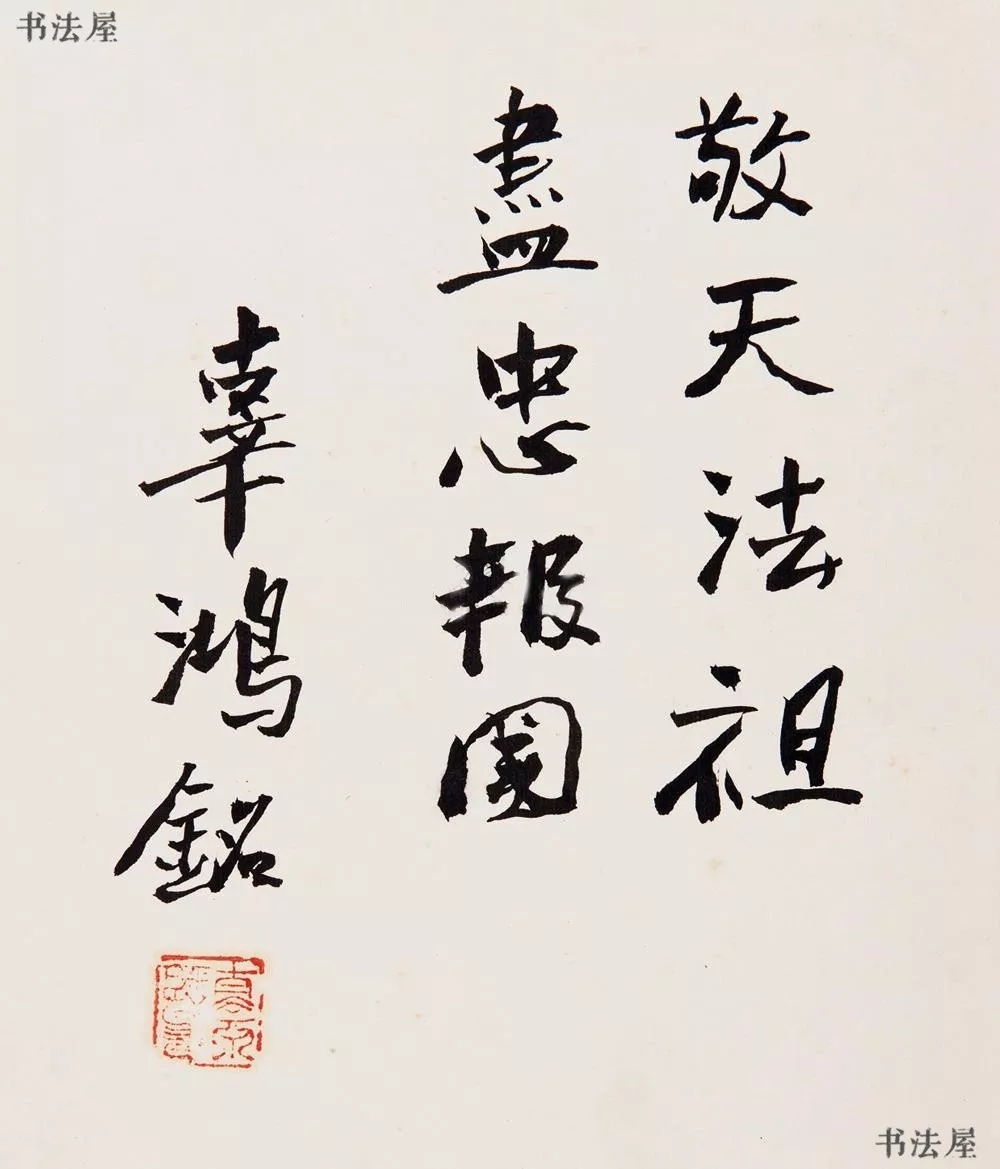 书法屋
敬天法祖
盡忠報國
辜鴻銘
书法屋